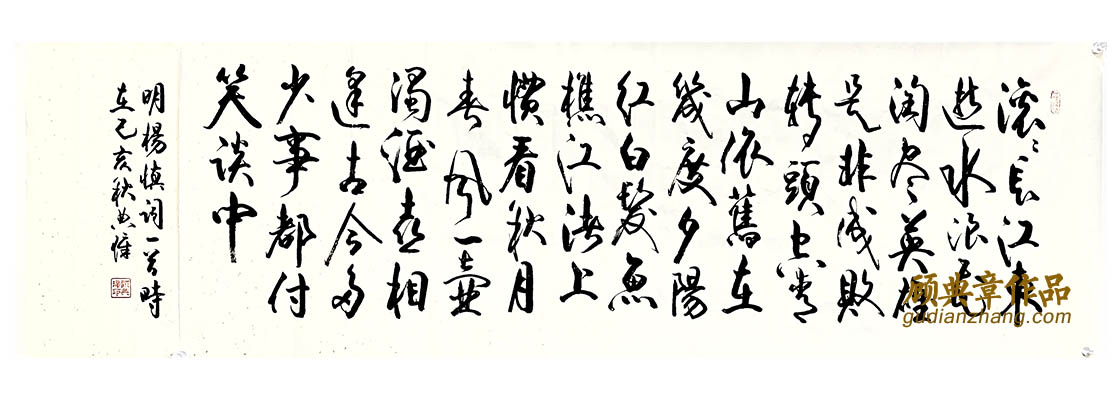 滚滚长江东
逝水浪花
淘尽英雄
是非成敗
轉頭空青
山依舊在
幾度夕陽
红白髮魚
樵江渚上
惯看秋月
春风一壺
濁酒喜相
逢古今多
少事都付
笑谈中
明楊慎词一首時
在己亥秋典
顾典章作品
gudianzhang.com